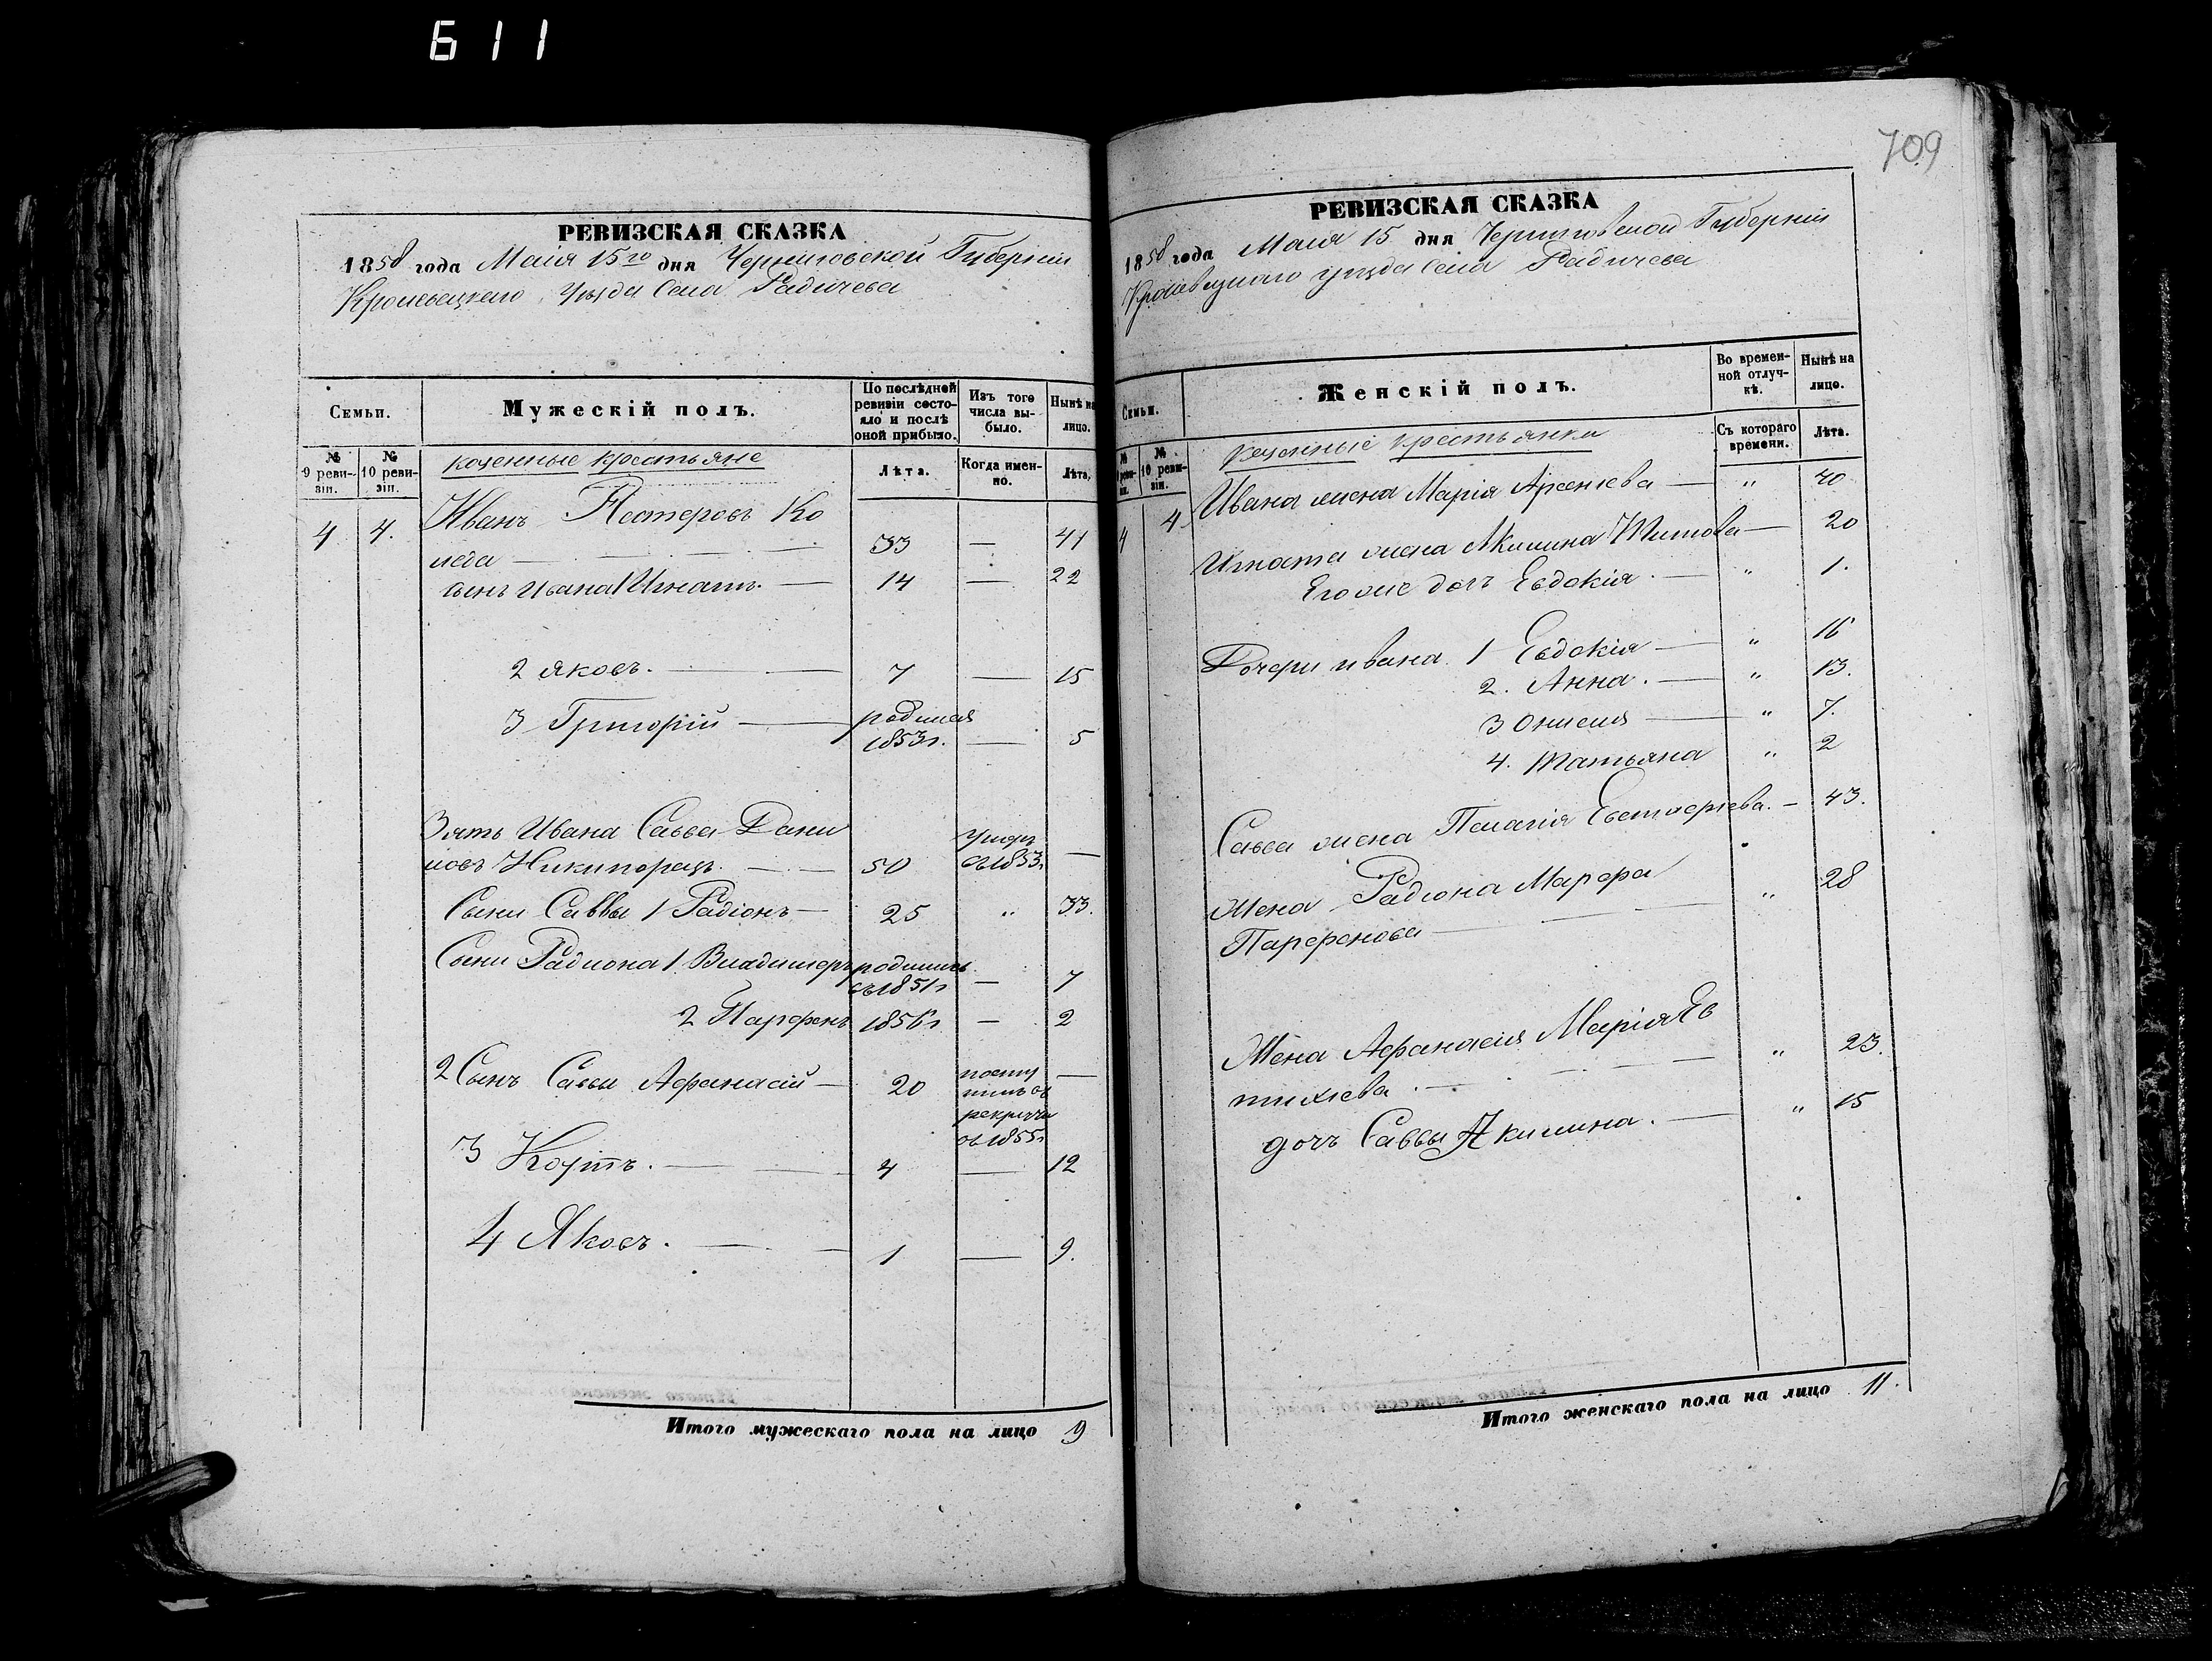 611
РЕВИЗСКАЯ СКАЗКА
1858 года Маія 15го дня Черниговской Губерніи
Кролевецкаго Уѣзда Села Радичева
Семьи.
Мужескій полъ.
По послѣдней ревизіи состояло и послѣ оной прибыло.
Изъ того числа выбыло.
Нынѣ на лицо.
№ 9 ревизіи.
№ 10 ревизіи.
козенные крестьяне
Лѣта.
Когда именно.
Лѣта.
4 4. Иванъ Нестеровъ Ко
леда — 33 — 41
сынъ Ивана 1 Игнатъ. — 14 — 22
2 яковъ. — 7 — 15
3 Григорій — родился
1853г. — 5
Зять Ивана Савва Дани
ловъ Никипорецъ. — 50 умеръ въ 1853г —
Сыни Саввы 1 Радіонъ — 25 „ 33.
Сыни Радиона 1. Владимеръ родились въ 1851г — 7
2 Парфенъ 1856г. — 2
2 Сынъ Саввы Афанасій — 20 посту
пилъ въ
рекруты
въ 1855г —
3 — 4 — 12
4 Яковъ. — 1 — 9.
Итого мужескаго пола на лицо 9
709
РЕВИЗСКАЯ СКАЗКА
1858 года Маія 15 дня Черниговской Губерніи
Кролевецкаго уѣзда Села Радичева
Семьи.
Женскій полъ.
Во временной отлучкѣ.
Нынѣ на лицо.
№ 9 ревизіи.
№ 10 ревизіи.
козенные крестьянки
Съ котораго времени.
Лѣта.
4 4. Ивана жена Марія Арсеніева — „ 40
Игната жена Акилина Титова — 20
Егоже дочъ Евдокія. — „ 1.
Дочери ивана. 1 Евдокія — „ 16
2. Анна. — „ 13.
3 Онисия — „ 7.
4. Татьяна „ 2
Савва жена Пелагія Евстаеріева. — 43.
Жена Радіона Марфа „ 28
Парфенова —
Жена Афанасія Марія Ев
тихіева. — „ 23.
дочъ Саввы Акилина. — „ 15
Итого женскаго пола на лицо 11.